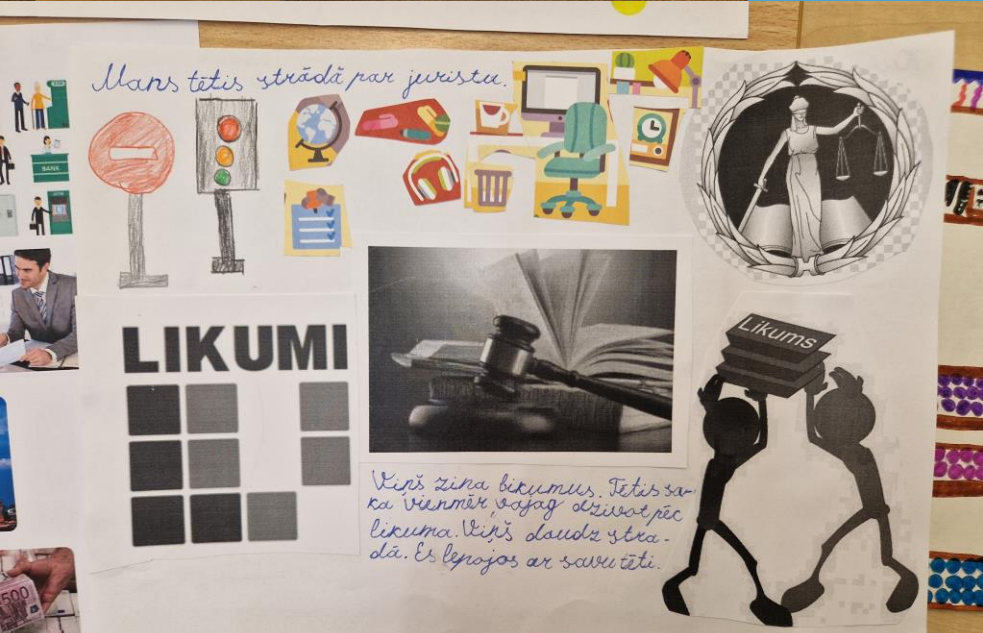 Mans tētis strādā par juristu.
BANK
LIKUMI
Likums
Viņš zina likumus. Tētis sa-
ka vienmēr vajag dzīvot pēc
likuma. Viņš daudz strā-
dā. Es lepojos ar savu tēti.
500